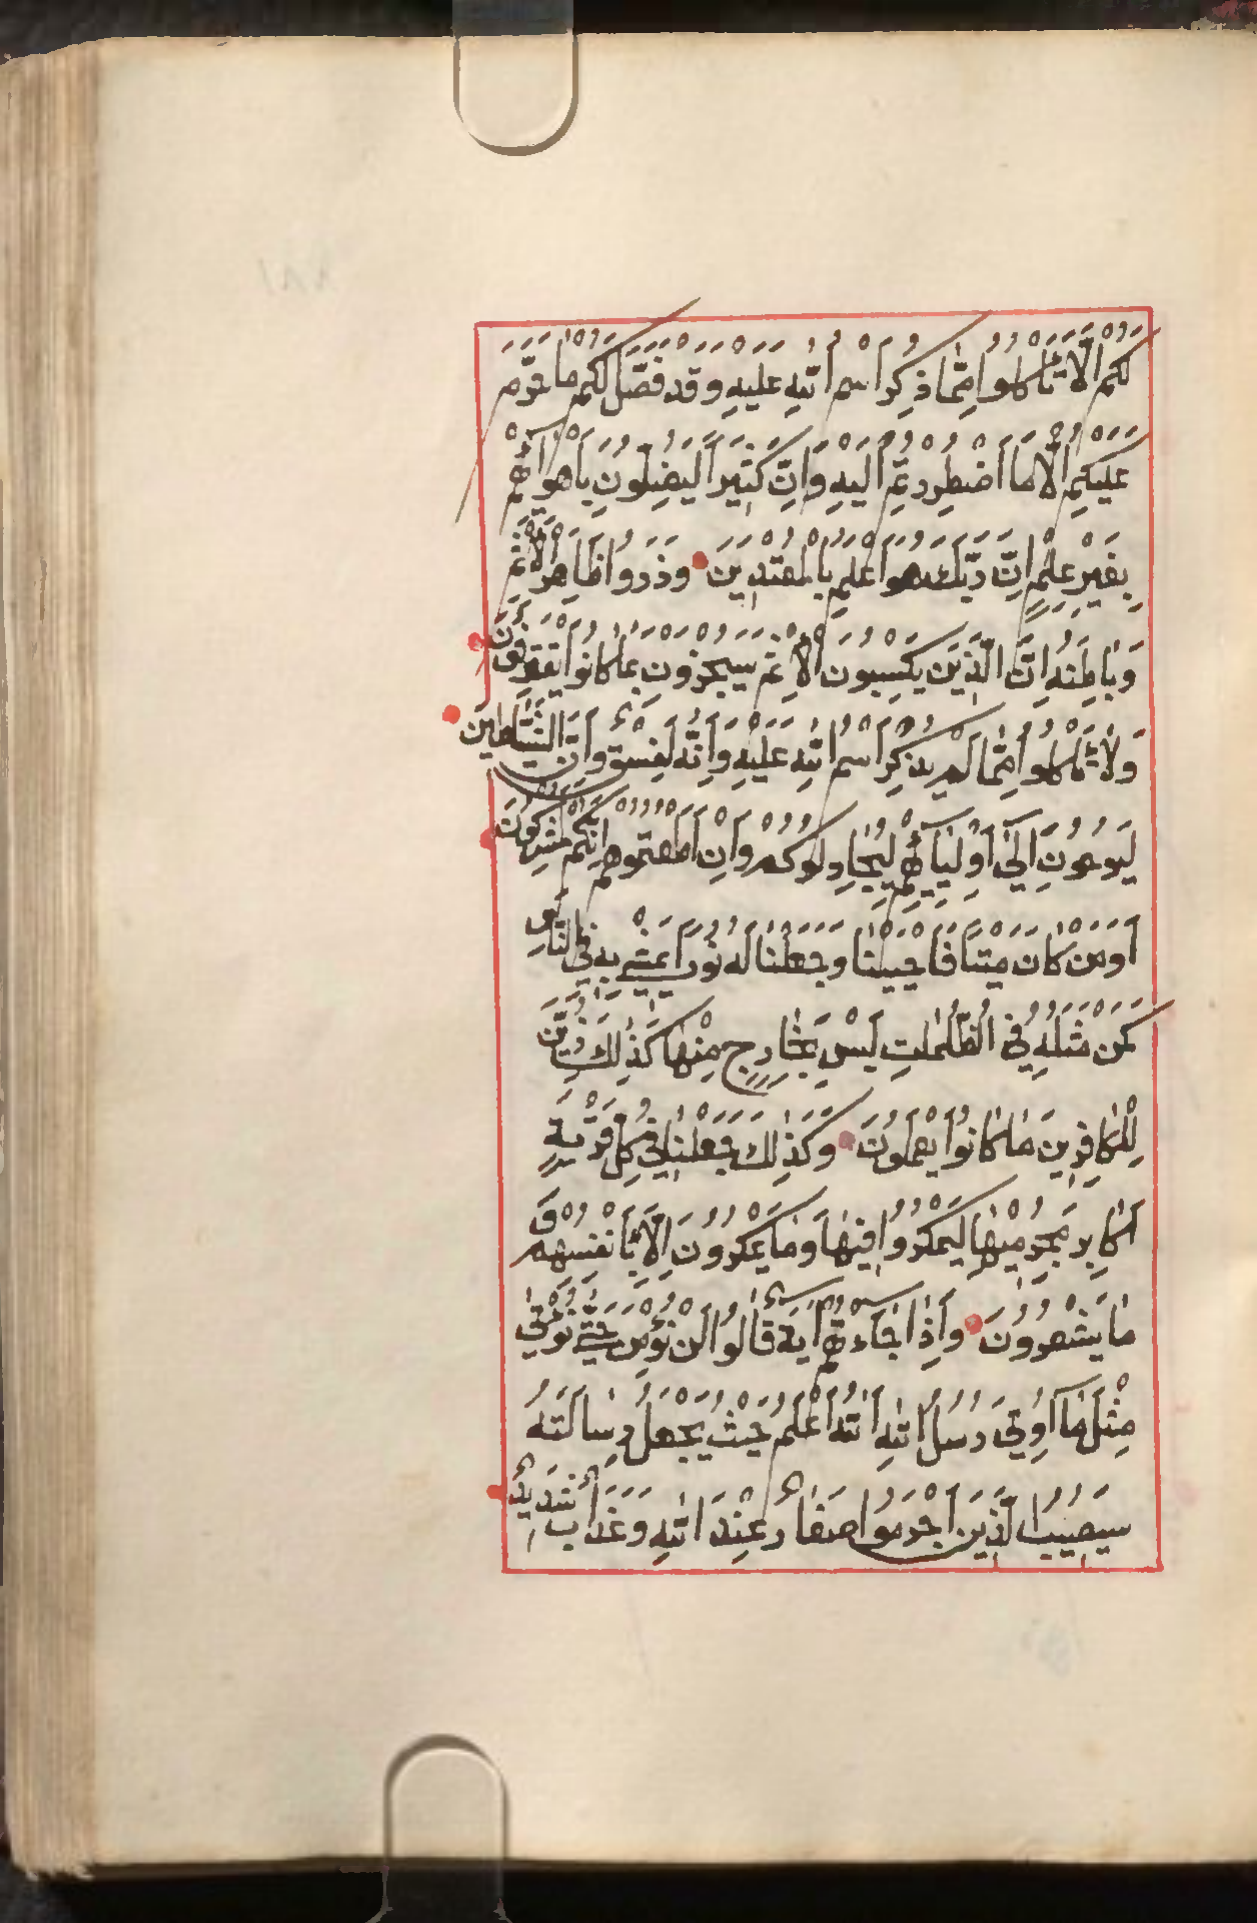 لَكُمْ اَلَّا تَأْكُلُوا مِمَّا ذُكِرَ اسْمُ اللّٰهِ عَلَيْهِ وَقَدْ فَصَّلَ لَكُمْ مَا حَرَّمَ
عَلَيْكُمْ اِلَّا مَا اضْطُرِرْتُمْ اِلَيْهِ وَاِنَّ كَثِيرًا لَيُضِلُّونَ بِاَهْوَآئِهِمْ
بِغَيْرِ عِلْمٍ اِنَّ رَبَّكَ هُوَ اَعْلَمُ بِالْمُعْتَدِينَ وَذَرُوا ظَاهِرَ الْاِثْمِ
وَبَاطِنَهُ اِنَّ الَّذِينَ يَكْسِبُونَ الْاِثْمَ سَيُجْزَوْنَ بِمَا كَانُوا يَقْتَرِفُونَ
وَلَا تَأْكُلُوا مِمَّا لَمْ يُذْكَرِ اسْمُ اللّٰهِ عَلَيْهِ وَاِنَّهُ لَفِسْقٌ وَاِنَّ الشَّيَاطِينَ
لَيُوحُونَ اِلٰٓى اَوْلِيَآئِهِمْ لِيُجَادِلُوكُمْ وَاِنْ اَطَعْتُمُوهُمْ اِنَّكُمْ لَمُشْرِكُونَ
اَوَمَنْ كَانَ مَيْتًا فَاَحْيَيْنَاهُ وَجَعَلْنَا لَهُ نُورًا يَمْشِي بِهِ فِي النَّاسِ
كَمَنْ مَثَلُهُ فِي الظُّلُمَاتِ لَيْسَ بِخَارِجٍ مِنْهَا كَذٰلِكَ زُيِّنَ
لِلْكَافِرِينَ مَا كَانُوا يَعْمَلُونَ وَكَذٰلِكَ جَعَلْنَا فِي كُلِّ قَرْيَةٍ
اَكَابِرَ مُجْرِمِيهَا لِيَمْكُرُوا فِيهَا وَمَا يَمْكُرُونَ اِلَّا بِاَنْفُسِهِمْ وَ
مَا يَشْعُرُونَ وَاِذَا جَآءَتْهُمْ اٰيَةٌ قَالُوا لَنْ نُؤْمِنَ حَتّٰى نُؤْتٰى
مِثْلَ مَا اُوتِيَ رُسُلُ اللّٰهِ اَللّٰهُ اَعْلَمُ حَيْثُ يَجْعَلُ رِسَالَتَهُ
سَيُصِيبُ الَّذِينَ اَجْرَمُوا صَغَارٌ عِنْدَ اللّٰهِ وَعَذَابٌ شَدِيدٌ